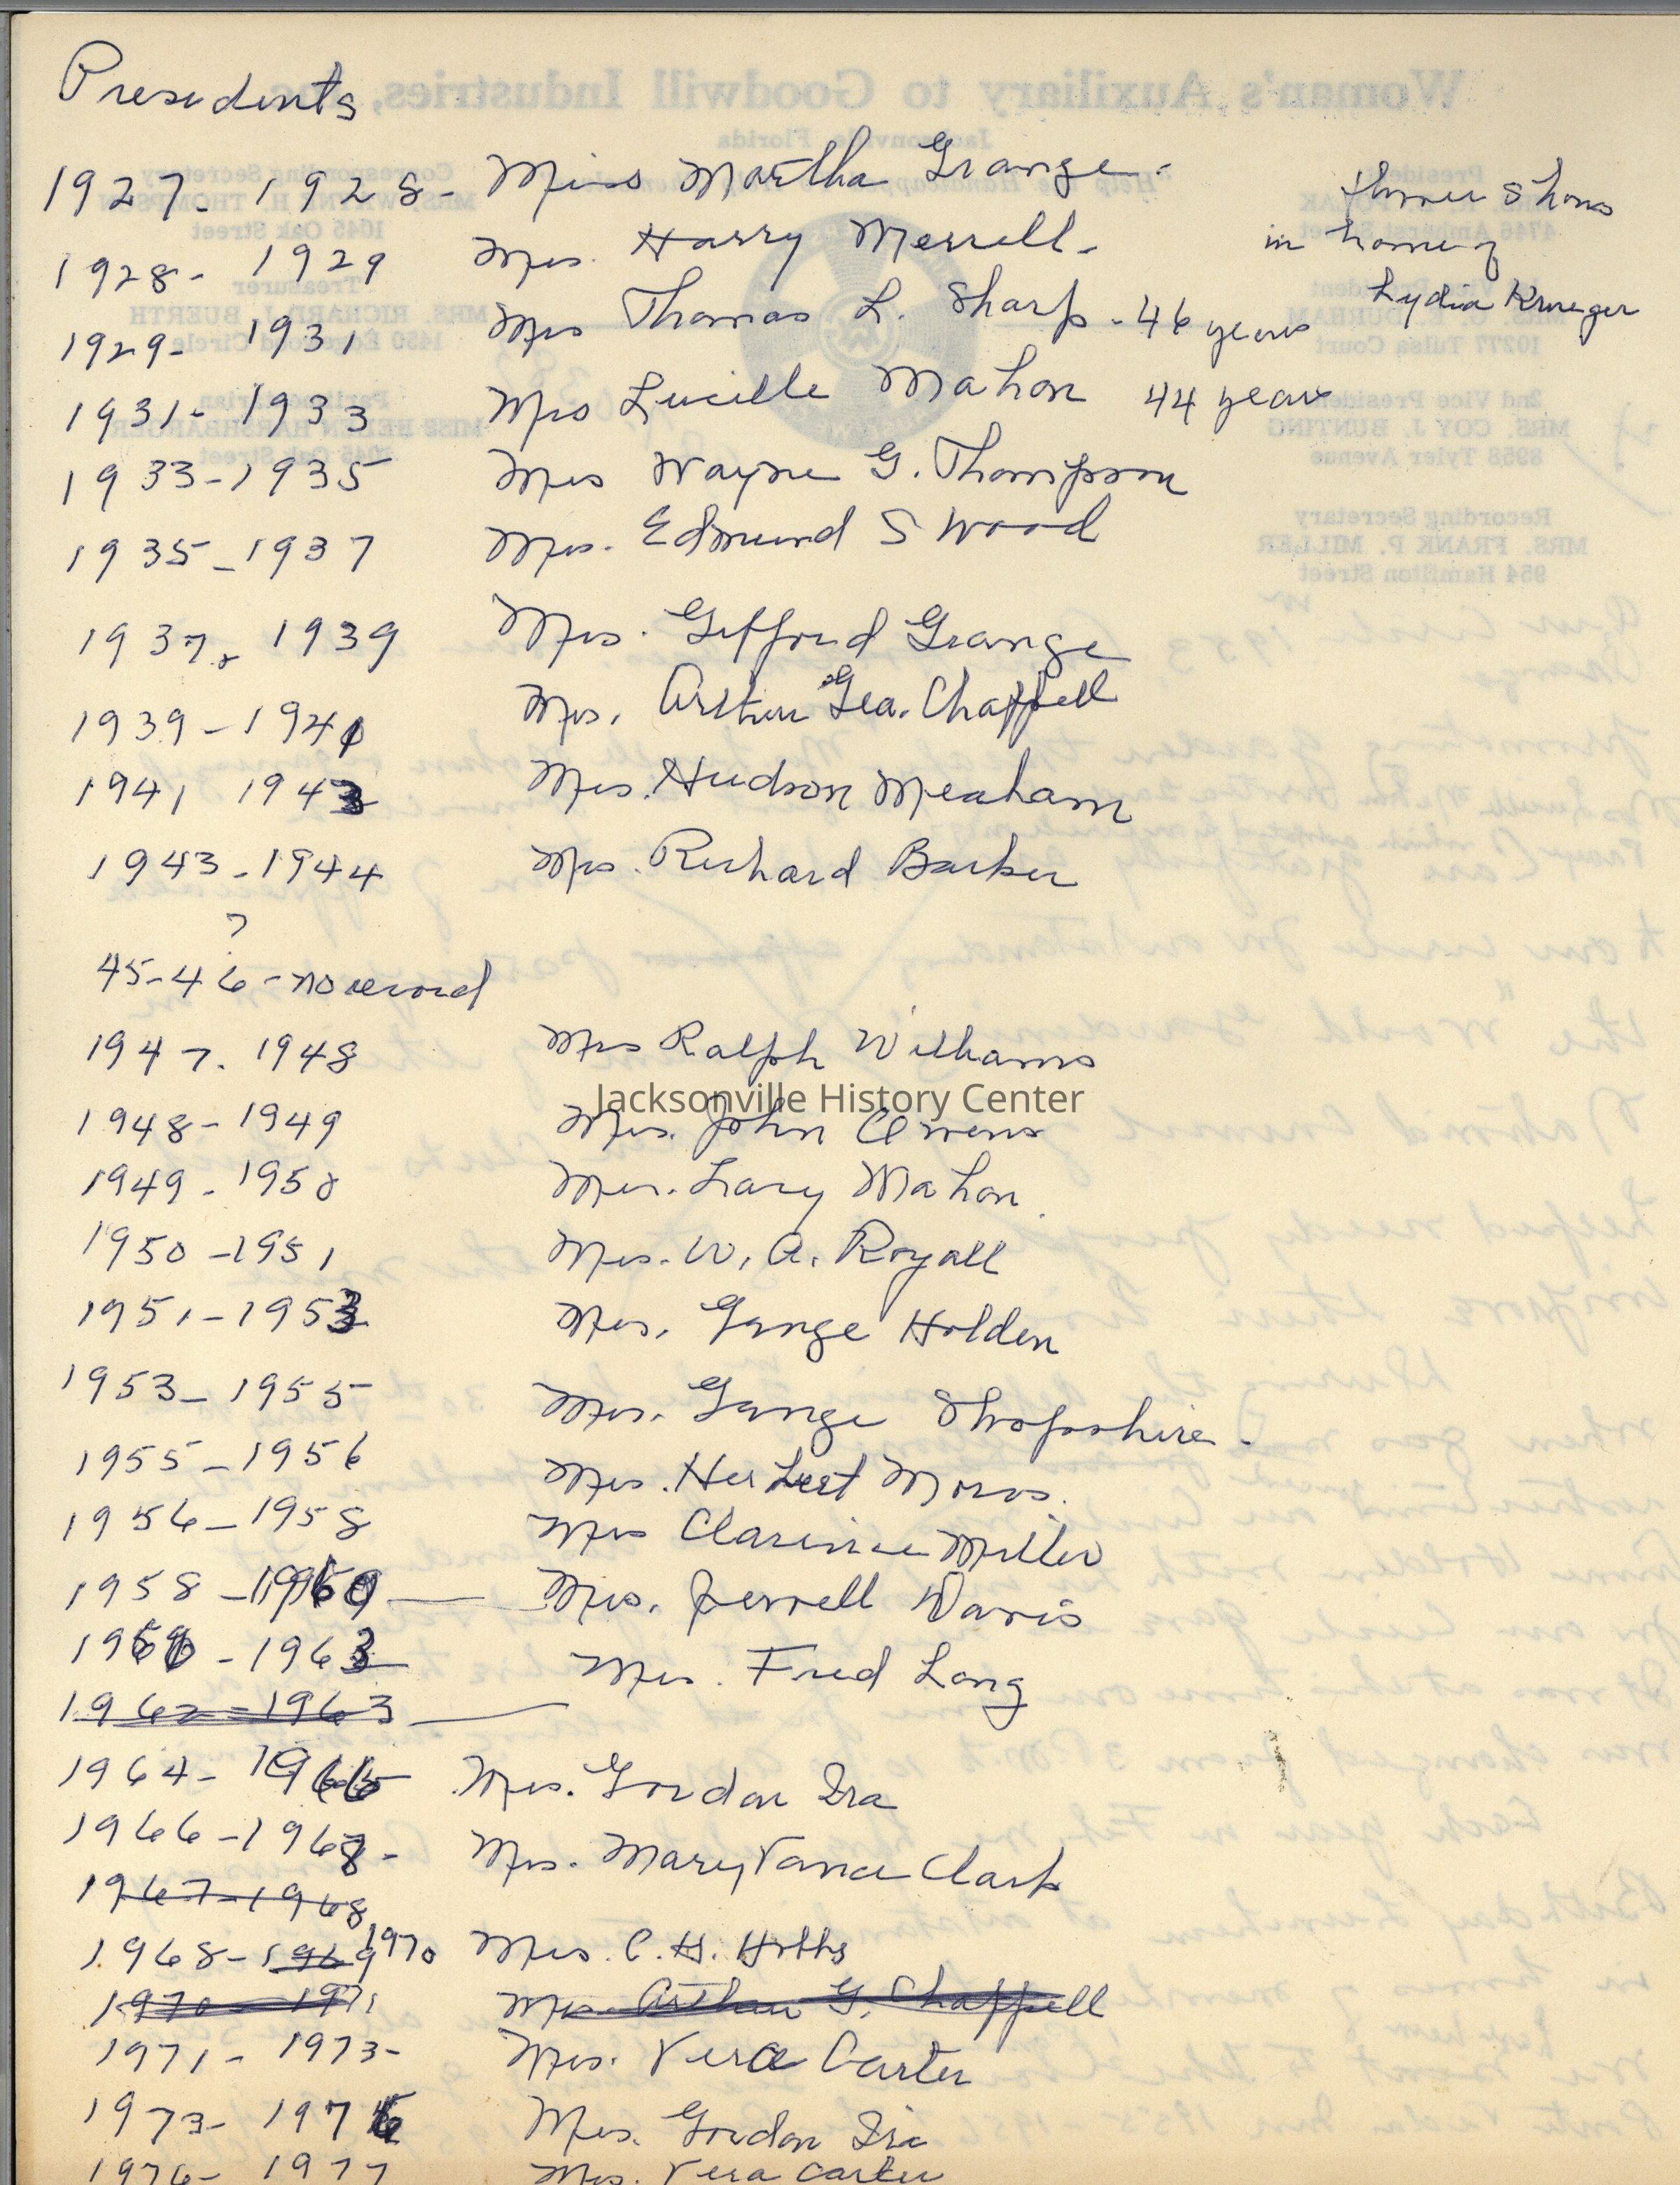 Presidents
1927-1928- Miss Martha Grange-
flower shows
in home of
Lydia Krueger
1928- 1929 Mrs. Harry Merrell-
1929- 1931 Mrs Thomas L. Sharp - 46 years
1931- 1933 Mrs Lucille Mahon 44 years
1933-1935 Mrs Wayne G. Thompson
1935-1937 Mrs. Edmund S Wood
1937- 1939 Mrs. Gifford Grange
1939-1941 Mrs. Arthur Geo. Chappell
1941 1943 Mrs. Hudson Meaham
1943-1944 Mrs. Richard Barker
?
45-46-no record
1947. 1948 Mrs Ralph Williams
Jacksonville History Center
1948-1949 Mrs. John Owens
1949-1950 Mrs. Lacy Mahon.
1950-1951 Mrs. W. A. Royall
1951-1953 Mrs. George Holden
1953-1955 Mrs. George Shropshire-
1955-1956 Mrs. Herbert
1956-1958 Mrs Clarence Miller
1958-1960 Mrs. Jerrell Davis
1960-1963 Mrs. Fred Long
1962-1963
1964-1966 Mrs. Gordon Ira
1966-1968- Mrs. Mary Vance Clark
1967-1968
1968-1969 1970 Mrs. C. H. Hobbs
1970-1971 Mrs. Arthur G. Chappell
1971- 1973- Mrs. Vera Carter
1973- 1976 Mrs. Gordon Ira
1976- 1977 Mrs. Vera Carter